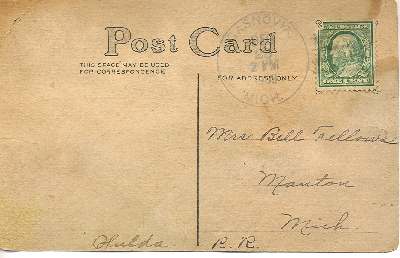 Post Card
THIS SPACE MAY BE USED
FOR CORRESPONDENCE
FOR ADDRESS ONLY
Mrs Bell Fellows
Manton
Mich
Hulda
R. R.